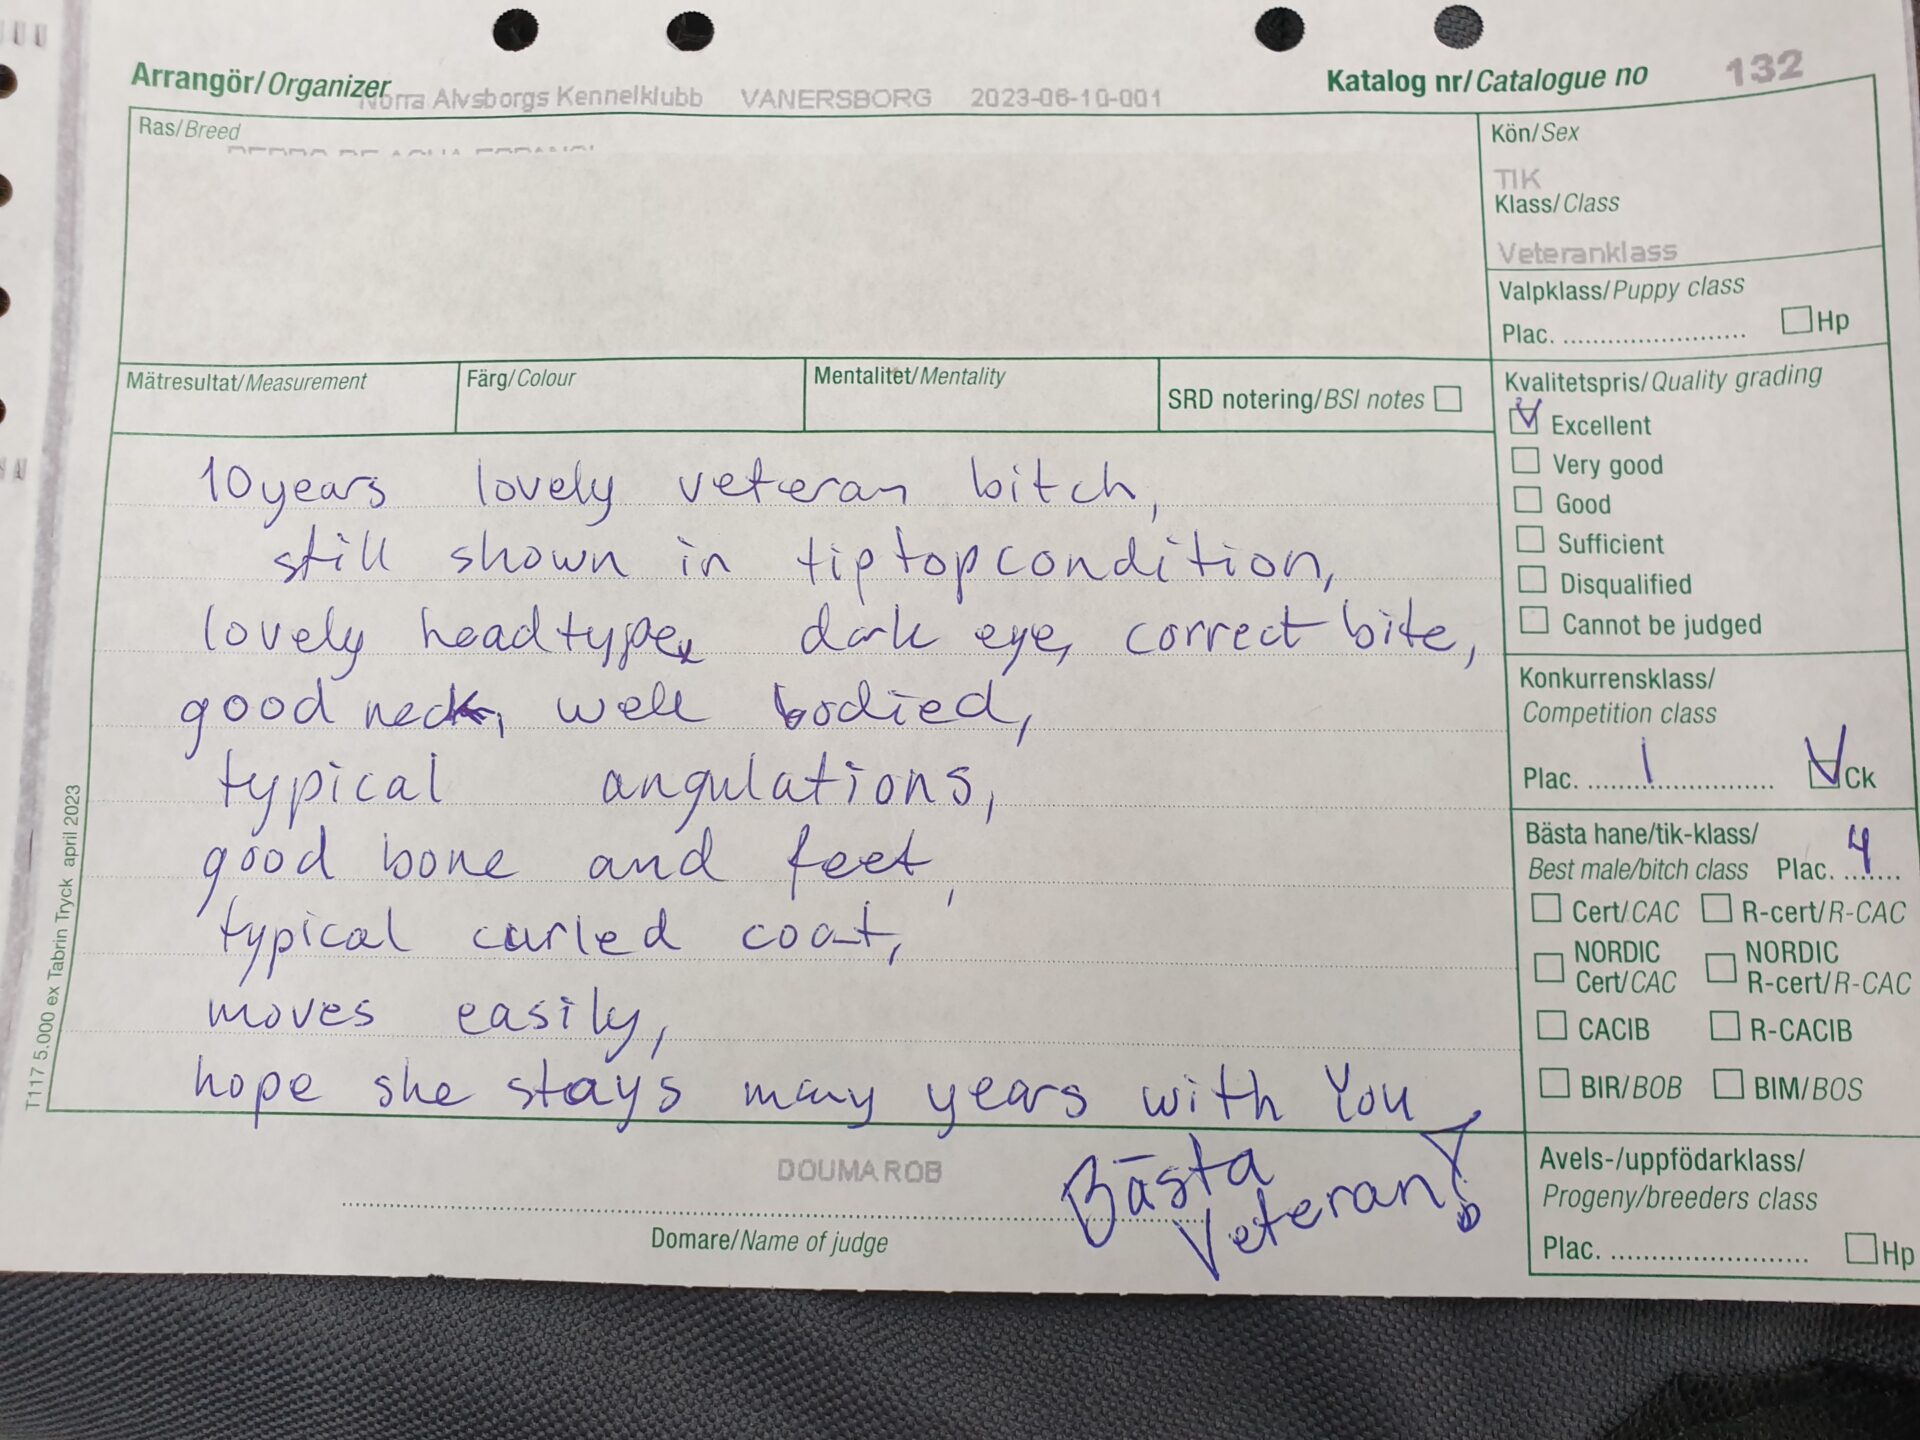 Arrangör/Organizer Norra Alvsborgs Kennelklubb VANERSBORG 2023-06-10-001
Katalog nr/Catalogue no 132
Ras/Breed
Kön/Sex
TIK
Klass/Class
Veteranklass
Valpklass/Puppy class
Plac. ☐ Hp
Mätresultat/Measurement
Färg/Colour
Mentalitet/Mentality
SRD notering/BSI notes ☐
10years lovely veteran bitch,
still shown in tiptopcondition,
lovely headtype, dark eye, correct bite,
good neck, well bodied,
typical angulations,
good bone and feet,
typical curled coat,
moves easily,
hope she stays many years with You
Bästa
Veteran!
DOUMA ROB
Domare/Name of judge
Kvalitetspris/Quality grading
Excellent
Very good
Good
Sufficient
Disqualified
Cannot be judged
Konkurrensklass/
Competition class
Plac. 1 Ck
Bästa hane/tik-klass/
Best male/bitch class Plac. 4
Cert/CAC R-cert/R-CAC
NORDIC NORDIC
Cert/CAC R-cert/R-CAC
CACIB R-CACIB
BIR/BOB BIM/BOS
Avels-/uppfödarklass/
Progeny/breeders class
Plac. Hp
T117 5.000 ex Tabrin Tryck april 2023